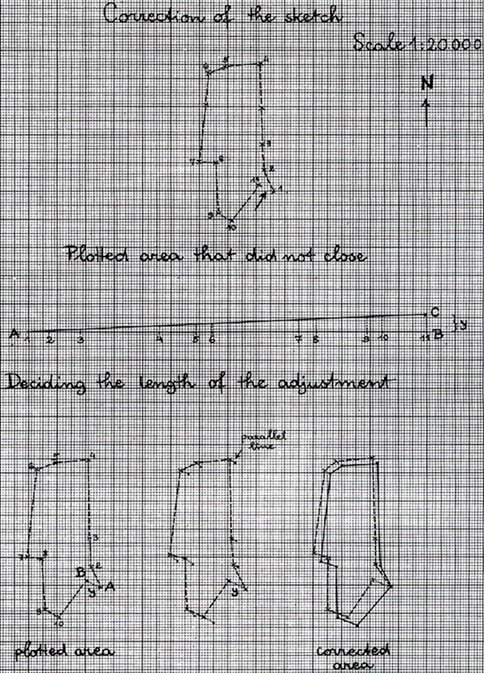 Correction of the sketch
Scale 1:20.000
N
6 5 4
3
7 8
2
11 1
9
10
Plotted area that did not close
C
A 1 2 3 4 5 6 7 8 9 10 11 B y
Deciding the length of the adjustment
parallel
line
6 5 4
3
7 8
2
B
y A
9
10
y
plotted area
corrected
area